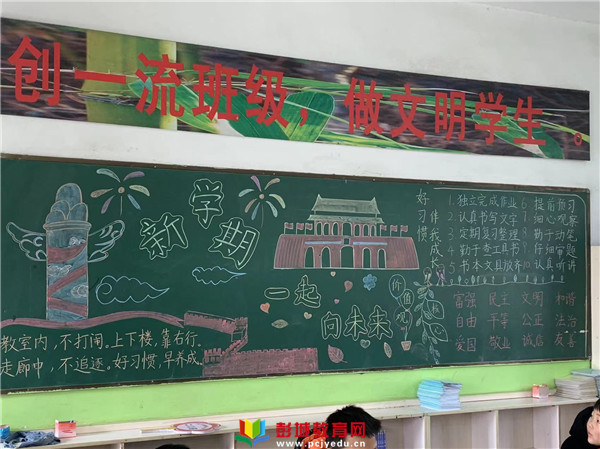 创一流班级，做文明学生。
新学期
一起
向未来
好习惯
伴我成长
1.独立完成作业
2.认真书写文字
3.定期复习整理
4.勤于查工具书
5.书本文具放齐
6.提前预习
7.细心观察
8.勤于动笔
9.仔细审题
10.认真听讲
价值观
核心
富强 民主 文明 和谐
自由 平等 公正 法治
爱国 敬业 诚信 友善
教室内，不打闹。上下楼，靠右行。
走廊中，不追逐。好习惯，早养成。
彭城教育网
www.pcjyedu.cn